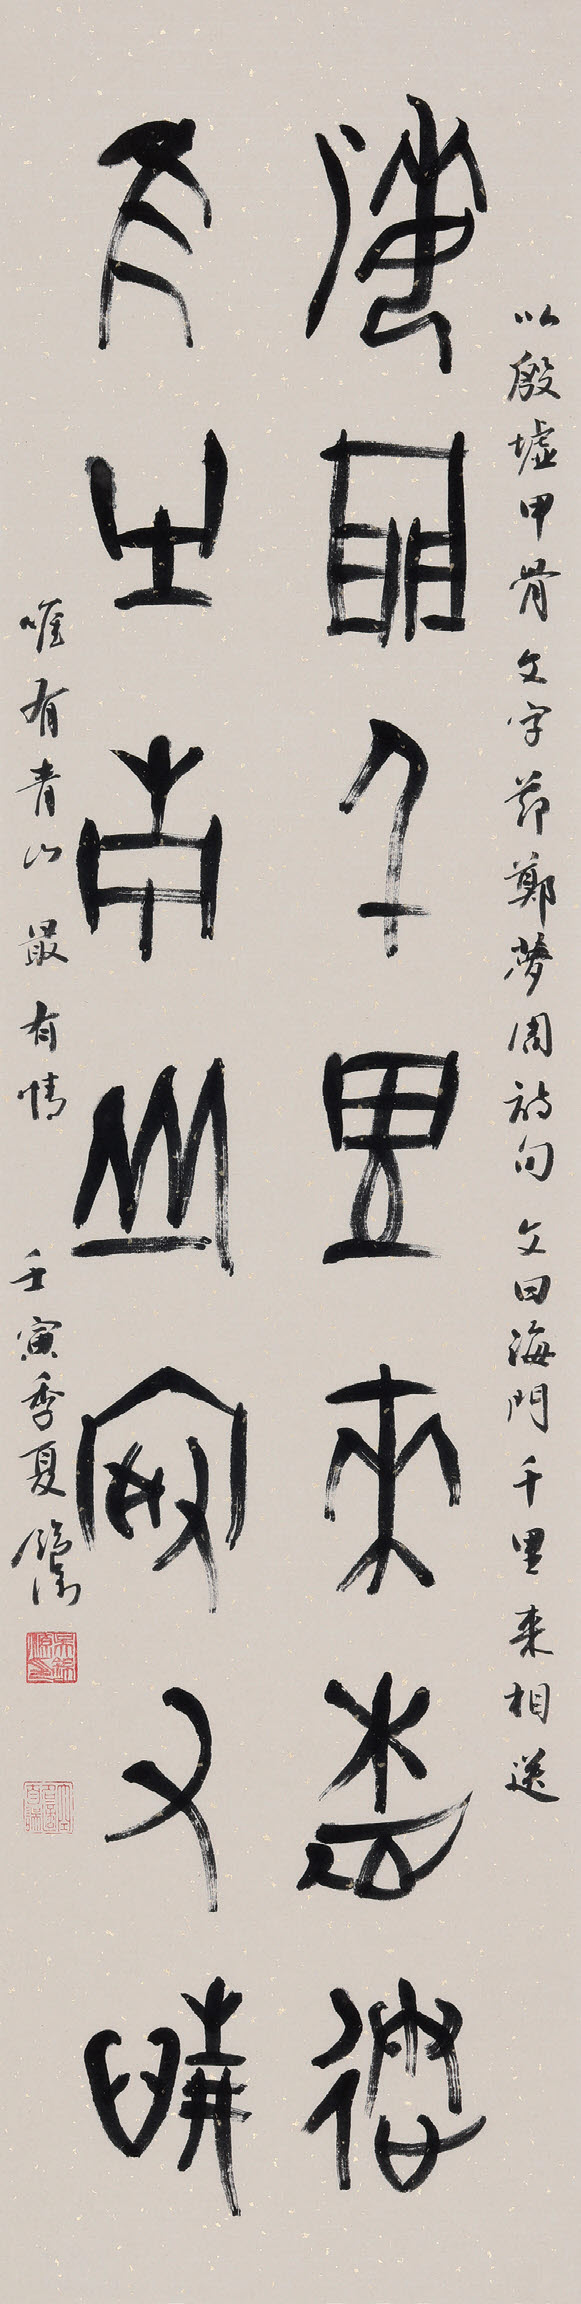 以殷墟甲骨文字節鄭夢周詩句 文曰海門千里来相送
海門千里來相送
唯有青山最有情
唯有青山最有情 壬寅季夏